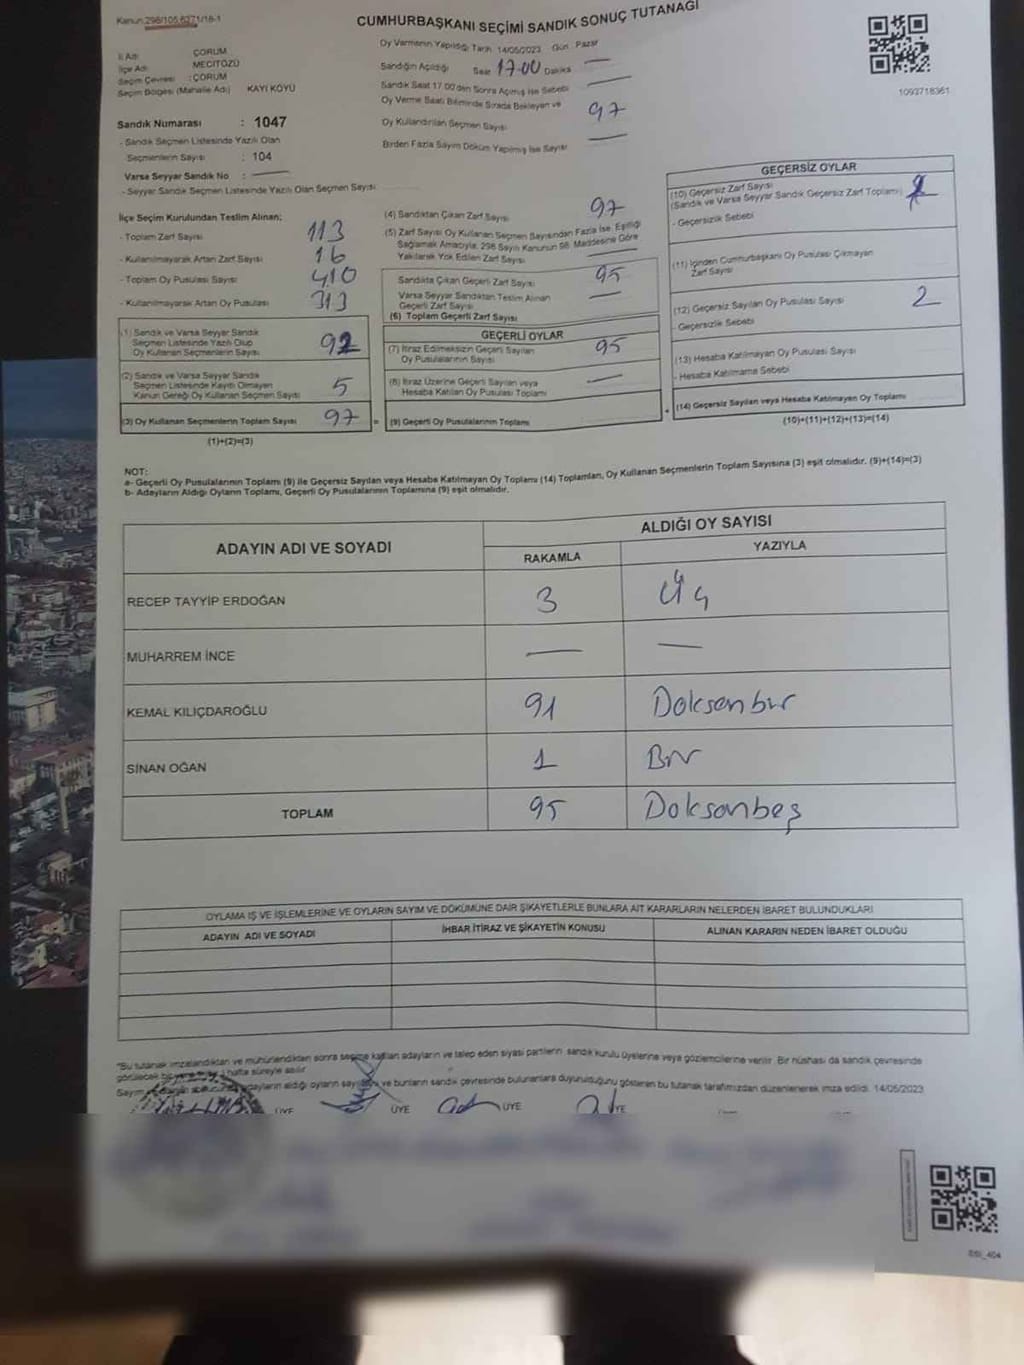 Kanun:298/105,6271/18-1
CUMHURBAŞKANI SEÇİMİ SANDIK SONUÇ TUTANAĞI
İl Adı ÇORUM
İlçe Adı MECİTÖZÜ
Seçim Çevresi : ÇORUM
Seçim Bölgesi (Mahalle Adı) KAYI KÖYÜ
Oy Vermenin Yapıldığı Tarih 14/05/2023 Gün : Pazar
Sandığın Açıldığı Saat 17.00 Dakika —
Sandık Saat 17.00'den Sonra Açılmış İse Sebebi —
Oy Verme Saati Bitiminde Sırada Bekleyen ve
Oy Kullandırılan Seçmen Sayısı 97
Birden Fazla Sayım Döküm Yapılmış İse Sayısı —
1093718361
Sandık Numarası : 1047
- Sandık Seçmen Listesinde Yazılı Olan
Seçmenlerin Sayısı : 104
Varsa Seyyar Sandık No : —
- Seyyar Sandık Seçmen Listesinde Yazılı Olan Seçmen Sayısı
İlçe Seçim Kurulundan Teslim Alınan;
- Toplam Zarf Sayısı 113
- Kullanılmayarak Artan Zarf Sayısı 16
- Toplam Oy Pusulası Sayısı 410
- Kullanılmayarak Artan Oy Pusulası 313
(1) Sandık ve Varsa Seyyar Sandık
Seçmen Listesinde Yazılı Olup
Oy Kullanan Seçmenlerin Sayısı 92
(2) Sandık ve Varsa Seyyar Sandık
Seçmen Listesinde Kayıtlı Olmayan
Kanun Gereği Oy Kullanan Seçmen Sayısı 5
(3) Oy Kullanan Seçmenlerin Toplam Sayısı 97 =
(1)+(2)=(3)
(4) Sandıktan Çıkan Zarf Sayısı 97
(5) Zarf Sayısı Oy Kullanan Seçmen Sayısından Fazla İse, Eşitliği
Sağlamak Amacıyla, 298 Sayılı Kanunun 98. Maddesine Göre
Yakılarak Yok Edilen Zarf Sayısı —
Sandıkta Çıkan Geçerli Zarf Sayısı 95
Varsa Seyyar Sandıktan Teslim Alınan
Geçerli Zarf Sayısı —
(6) Toplam Geçerli Zarf Sayısı
GEÇERLİ OYLAR
(7) İtiraz Edilmeksizin Geçerli Sayılan
Oy Pusulalarının Sayısı 95
(8) İtiraz Üzerine Geçerli Sayılan veya
Hesaba Katılan Oy Pusulası Toplamı —
(9) Geçerli Oy Pusulalarının Toplamı +
GEÇERSİZ OYLAR
(10) Geçersiz Zarf Sayısı
(Sandık ve Varsa Seyyar Sandık Geçersiz Zarf Toplamı)
- Geçersizlik Sebebi
(11) İçinden Cumhurbaşkanı Oy Pusulası Çıkmayan
Zarf Sayısı
(12) Geçersiz Sayılan Oy Pusulası Sayısı 2
- Geçersizlik Sebebi
(13) Hesaba Katılmayan Oy Pusulası Sayısı
- Hesaba Katılmama Sebebi
(14) Geçersiz Sayılan veya Hesaba Katılmayan Oy Toplamı
(10)+(11)+(12)+(13)=(14)
NOT:
a- Geçerli Oy Pusulalarının Toplamı (9) ile Geçersiz Sayılan veya Hesaba Katılmayan Oy Toplamı (14) Toplamları, Oy Kullanan Seçmenlerin Toplam Sayısına (3) eşit olmalıdır. (9)+(14)=(3)
b- Adayların Aldığı Oyların Toplamı, Geçerli Oy Pusulalarının Toplamına (9) eşit olmalıdır.
ADAYIN ADI VE SOYADI
ALDIĞI OY SAYISI
RAKAMLA YAZIYLA
RECEP TAYYİP ERDOĞAN 3 Üç
MUHARREM İNCE — —
KEMAL KILIÇDAROĞLU 91 Doksanbir
SİNAN OĞAN 1 Bir
TOPLAM 95 Doksanbeş
OYLAMA İŞ VE İŞLEMLERİNE VE OYLARIN SAYIM VE DÖKÜMÜNE DAİR ŞİKAYETLERLE BUNLARA AİT KARARLARIN NELERDEN İBARET BULUNDUKLARI
ADAYIN ADI VE SOYADI İHBAR İTİRAZ VE ŞİKAYETİN KONUSU ALINAN KARARIN NEDEN İBARET OLDUĞU
"Bu tutanak imzalandıktan ve mühürlendikten sonra seçime katılan adayların ve talep eden siyasi partilerin sandık kurulu üyelerine veya gözlemcilerine verilir. Bir nüshası da sandık çevresinde
görülecek bir hafta süreyle asılır
Sayım adayların aldığı oyların sayısını ve bunların sandık çevresinde bulunanlara duyurulduğunu gösteren bu tutanak tarafımızdan düzenlenerek imza edildi. 14/05/2023
ÜYE ÜYE ÜYE ÜYE
SSI_404